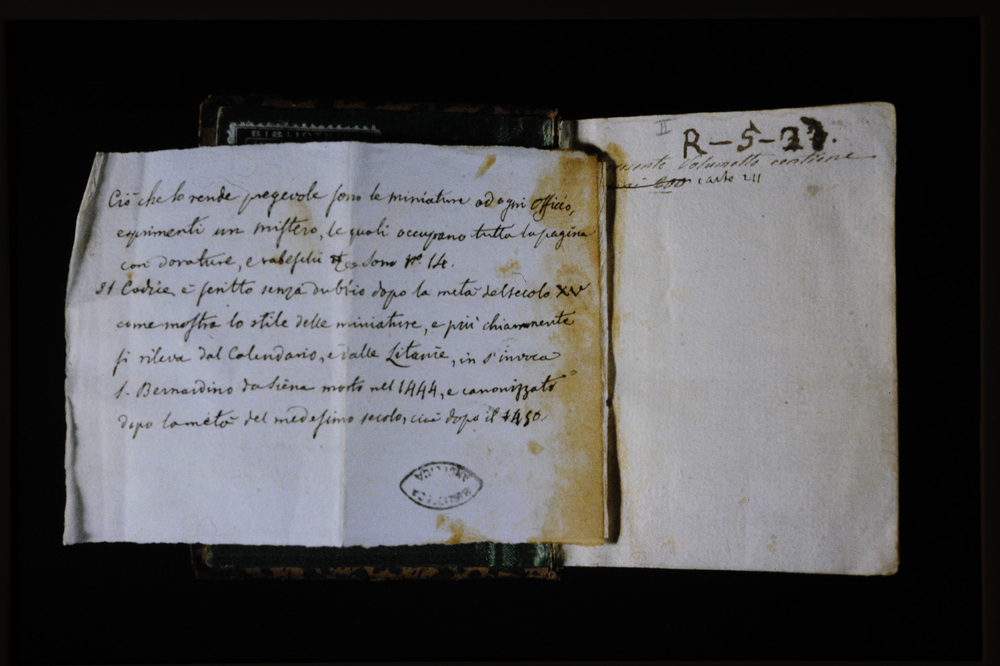 BIBLIOTECA
Ciò che lo rende pregevole sono le miniature ad ogni Officio,
esprimenti un mistero, le quali occupano tutta la pagina
con dorature, e rabeschi &c Sono nº 14.
Il Codice è scritto senza dubbio dopo la metà del secolo XV
come mostra lo stile delle miniature, e più chiaramente
si rileva dal Calendario, e dalle Litanie, in s'invoca
S. Bernardino da Siena morto nel 1444, e canonizzato
dopo la metà del medesimo secolo, cioè dopo il 1450.
BIBLIOTECA
ANGELICA
II
R-5-27.
presente Volumetto contiene
carte 211